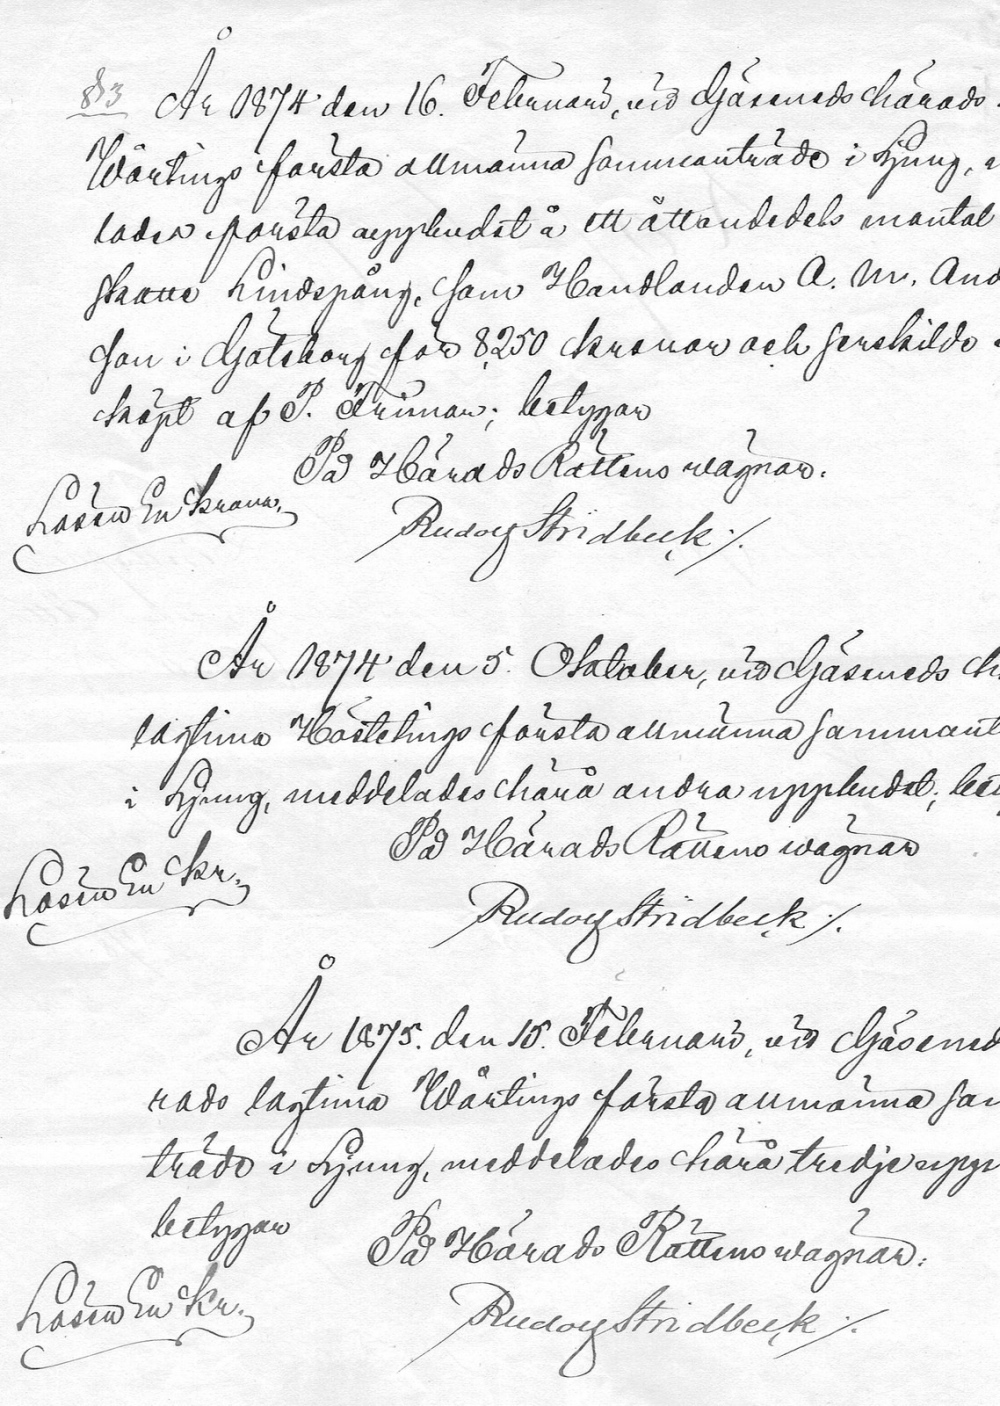 §3 År 1874 den 16. Februari, vid Gäseneds härads
Wårtings första allmänna sammanträde i Ljung,
lades första uppbudet å ett åttondedels mantal
skatte Lindspång, som Handlanden A. M. And
son i Göteborg för 8,250 kronor och serskilde
köpt af P. Trimar; betygar
På Härads Rättens wägnar.
Lösen En Krona.
Rudolf Stridbeck ./.
År 1874 den 5. Oktober, vid Gäseneds h
lagtima Hösttings första allmänna sammant
i Ljung, meddelades härå andra uppbudet; bet
På Härads Rättens wägnar
Lösen En Kr.
Rudolf Stridbeck ./.
År 1875. den 15. Februari, vid Gäsened
rads lagtima Wårtings första allmänna sam
träde i Ljung, meddelades härå tredje upp
betygar
På Härads Rättens wägnar.
Lösen En Kr.
Rudolf Stridbeck ./.